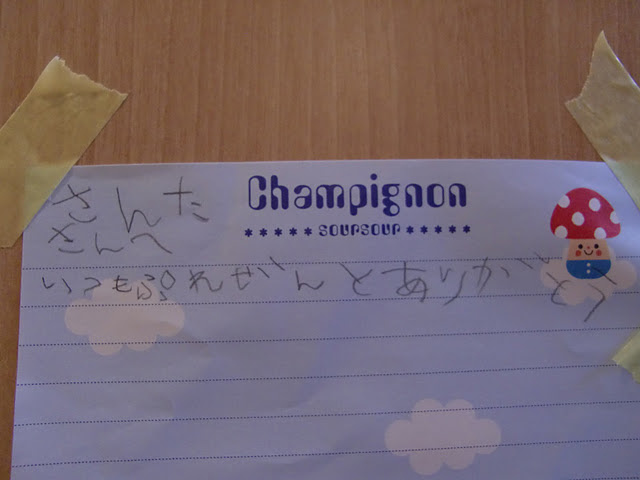 Champignon
*****SOUPSOUP*****
さんた
さんへ
いつもぷれぜんとありがとう